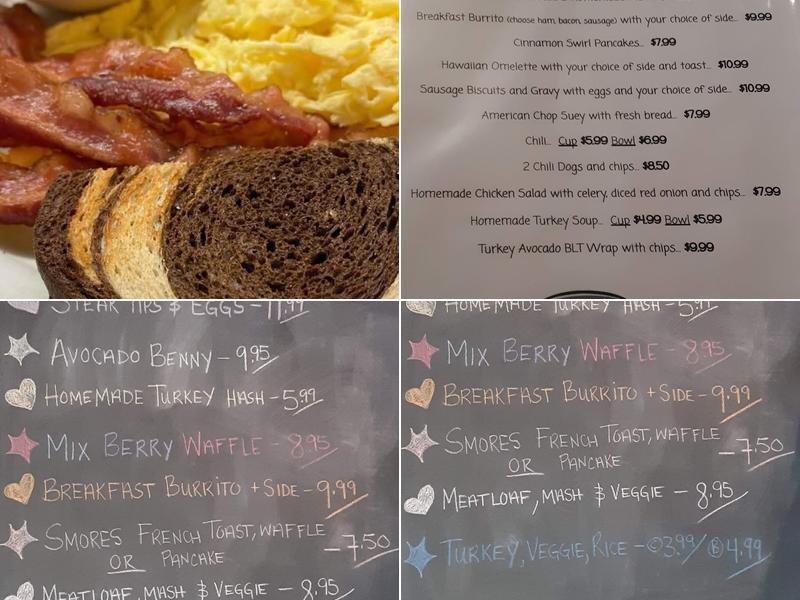 Breakfast Burrito (choose ham, bacon, sausage) with your choice of side... $9.99
Cinnamon Swirl Pancakes... $7.99
Hawaiian Omelette with your choice of side and toast... $10.99
Sausage Biscuits and Gravy with eggs and your choice of side... $10.99
American Chop Suey with fresh bread... $7.99
Chili... Cup $5.99 Bowl $6.99
2 Chili Dogs and chips... $8.50
Homemade Chicken Salad with celery, diced red onion and chips... $7.99
Homemade Turkey Soup... Cup $4.99 Bowl $5.99
Turkey Avocado BLT Wrap with chips... $9.99
STEAK TIPS & EGGS - 11.99
AVOCADO BENNY - 9.95
HOMEMADE TURKEY HASH - 5.99
MIX BERRY WAFFLE - 8.95
BREAKFAST BURRITO + SIDE - 9.99
SMORES FRENCH TOAST, WAFFLE
OR PANCAKE - 7.50
MEATLOAF, MASH & VEGGIE - 8.95
HOMEMADE TURKEY HASH - 5.99
MIX BERRY WAFFLE - 8.95
BREAKFAST BURRITO + SIDE - 9.99
SMORES FRENCH TOAST, WAFFLE
OR PANCAKE - 7.50
MEATLOAF, MASH & VEGGIE - 8.95
TURKEY, VEGGIE, RICE - ©3.99/ Ⓑ4.99